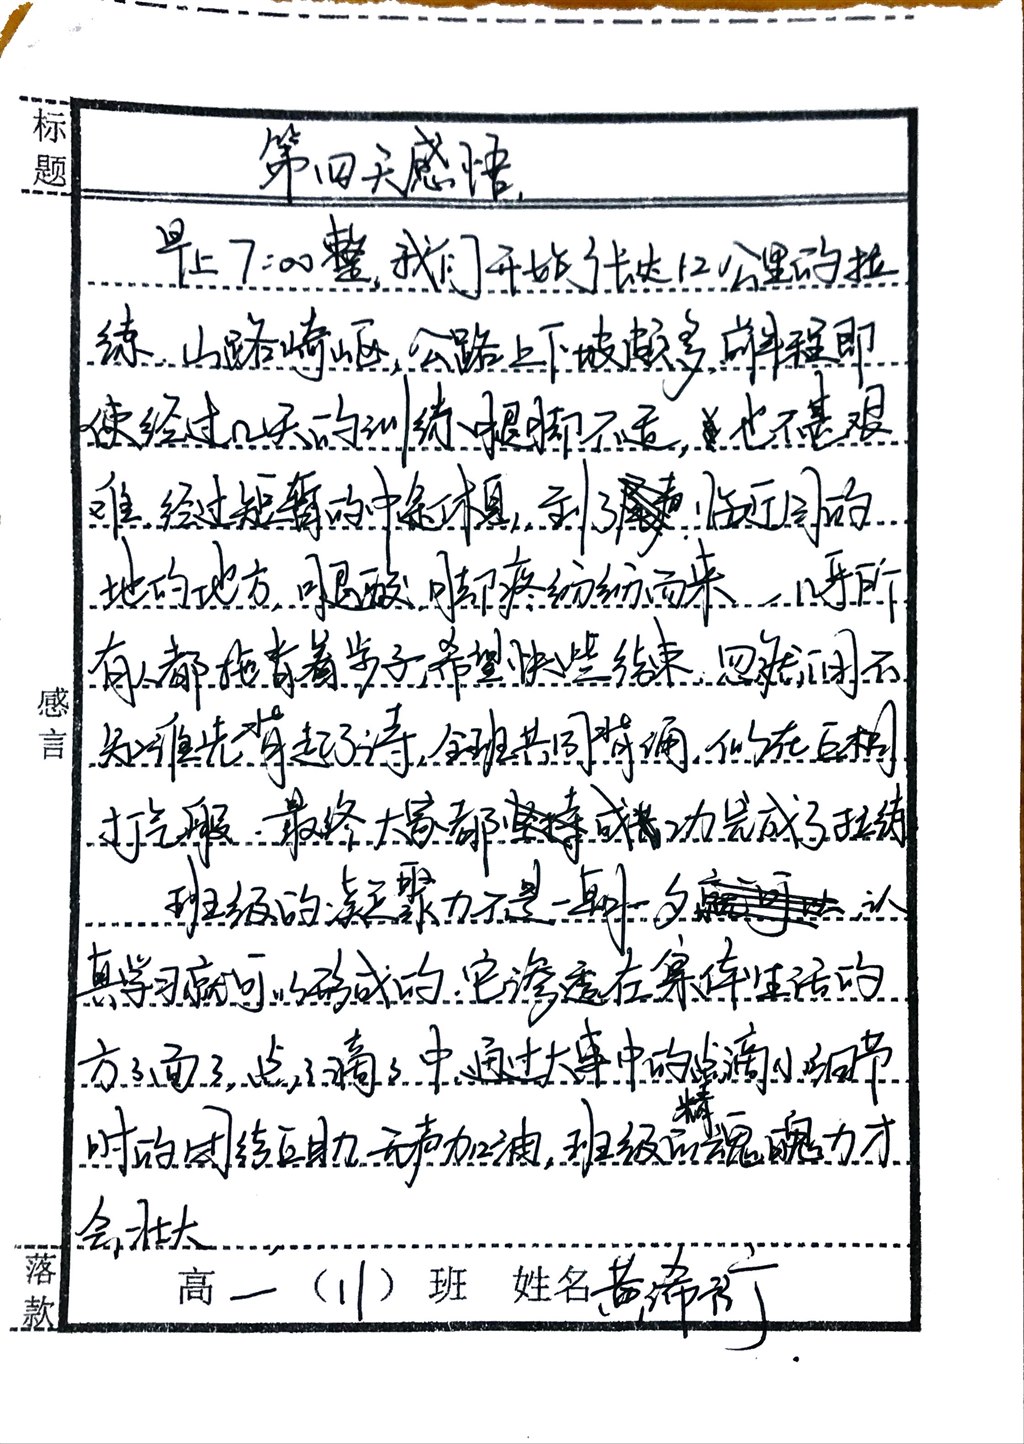 标题
第四天感悟
早上7:00整,我们开始了长达12公里的拉
练.山路崎岖,公路上下坡颇多,前半程即
使经过几天的训练、腿脚不适,也不甚艰
难.经过短暂的中途休息,到了临近
地的地方,腿酸脚疼纷纷而来,几乎所
有人都拖着步子,希望快些结束.忽然间不
知谁先背起了诗,全班共同背诵,似在互相
打气般.最终大家都成功完成了拉练
班级的凝聚力不是一朝一夕认
真学习就可以形成的.它渗透在集体生活的
方方面面,点点滴滴中.通过大事中的点滴小细节
时的团结互助,无声加油,班级的精魂魄力才
会壮大
感言
落款
高一(11)班 姓名黄